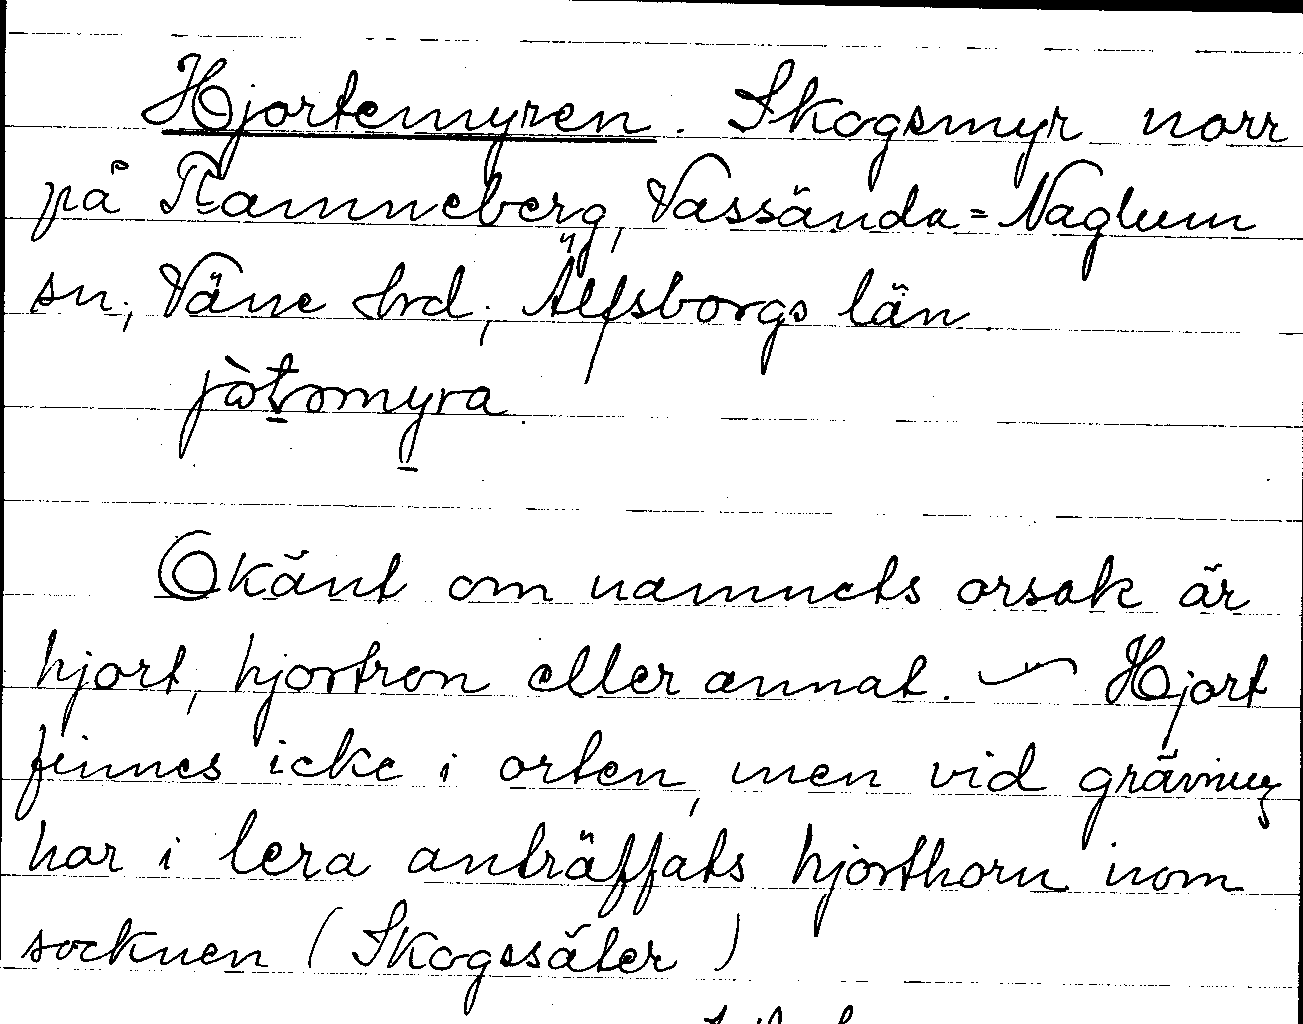 Hjortemyren. Skogsmyr norr
på Ranneberg, Vassända-Naglum
sn, Väne hrd, Älfsborgs län.
jòtromyra
Okänt om namnets orsak är
hjort, hjortron eller annat. — Hjort
finnes icke i orten, men vid grävning
har i lera anträffats hjorthorn inom
socknen (Skogssäter)